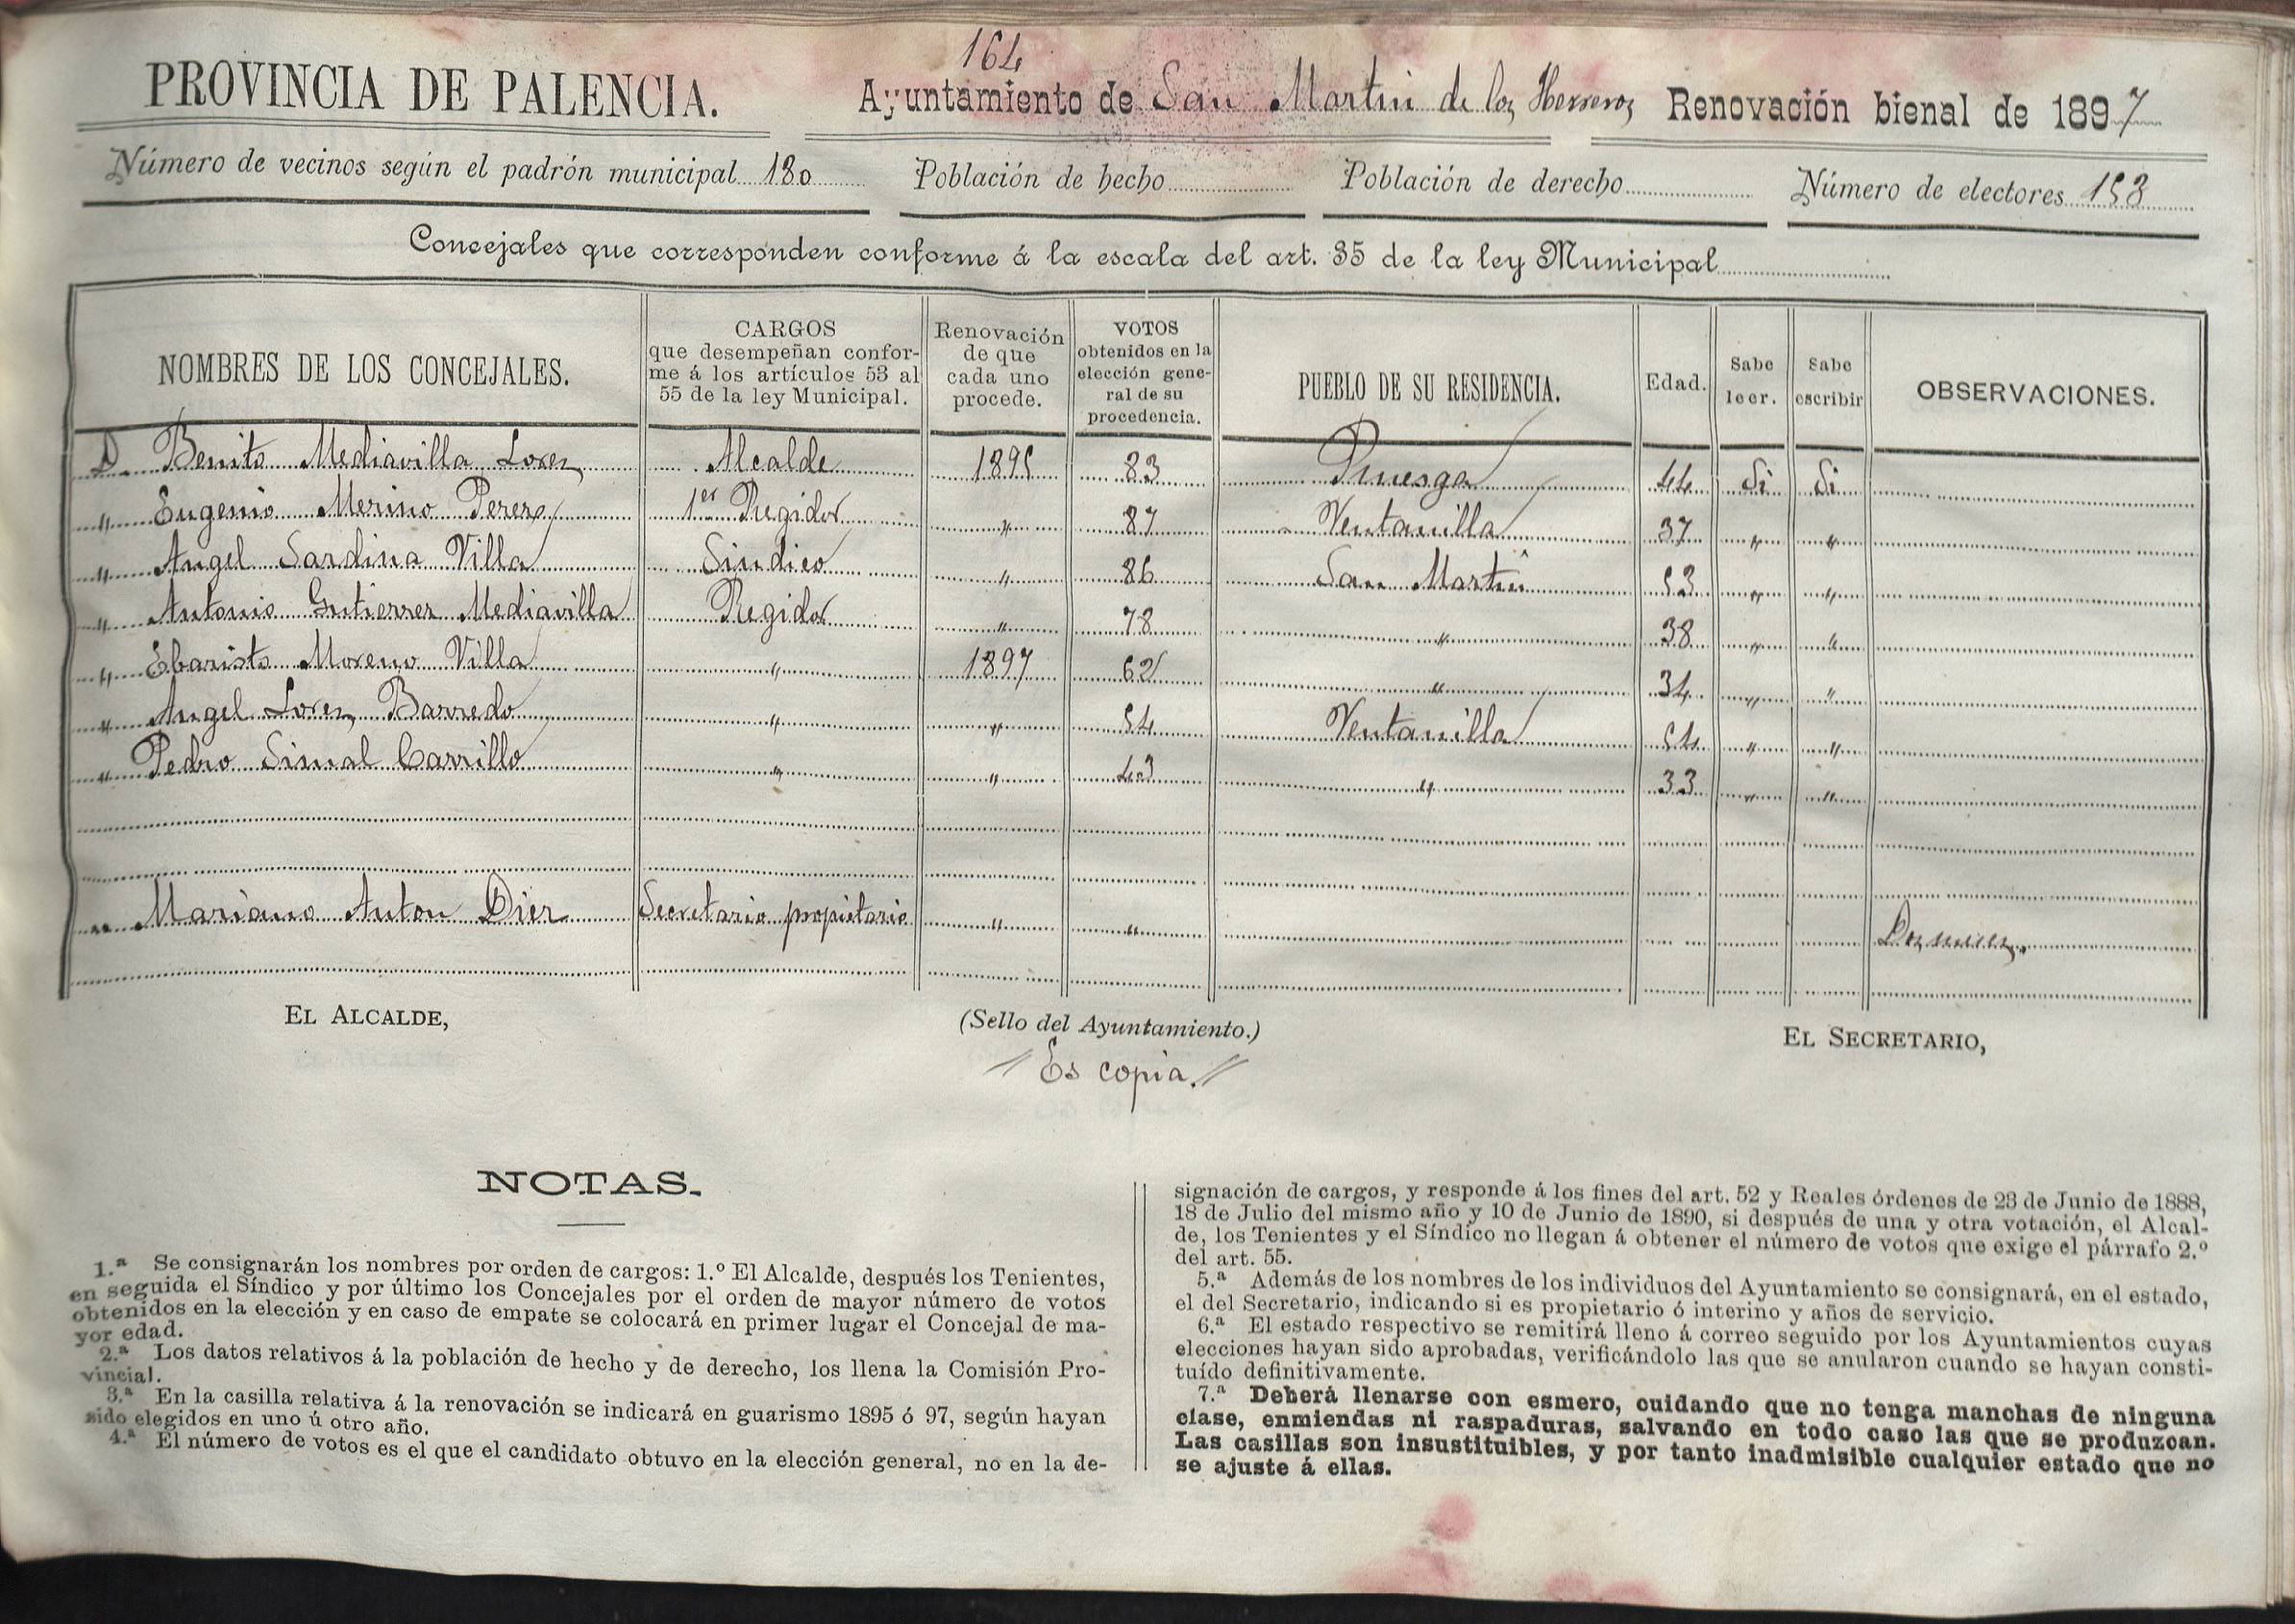 164
PROVINCIA DE PALENCIA. Ayuntamiento de San Martin de los Herreros Renovación bienal de 1897
Número de vecinos según el padrón municipal 180 Población de hecho Población de derecho Número de electores 153
Concejales que corresponden conforme á la escala del art. 35 de la ley Municipal
NOMBRES DE LOS CONCEJALES. CARGOS que desempeñan conforme á los artículos 53 al 55 de la ley Municipal. Renovación de que cada uno procede. VOTOS obtenidos en la elección general de su procedencia. PUEBLO DE SU RESIDENCIA. Edad. Sabe leer. Sabe escribir OBSERVACIONES.
D. Benito Mediavilla Lores Alcalde 1895 83 Ruesga 44 Si Si
" Eugenio Merino Perez 1er Regidor " 87 Ventanilla 37 " "
" Angel Sardina Villa Sindico " 86 San Martin 53 " "
" Antonio Gutierrez Mediavilla Regidor " 78 " 38 " "
" Ebaristo Moreno Villa " 1897 62 " 34 " "
" Angel Lores Barredo " " 54 Ventanilla 54 " "
" Pedro Simal Carrillo " " 43 " 33 " "
" Mariano Anton Diez Secretario propietario " "
EL ALCALDE, (Sello del Ayuntamiento.) EL SECRETARIO,
Es copia.
NOTAS.
1.ª Se consignarán los nombres por orden de cargos: 1.º El Alcalde, después los Tenientes,
en seguida el Síndico y por último los Concejales por el orden de mayor número de votos
obtenidos en la elección y en caso de empate se colocará en primer lugar el Concejal de ma-
yor edad.
2.ª Los datos relativos á la población de hecho y de derecho, los llena la Comisión Pro-
vincial.
3.ª En la casilla relativa á la renovación se indicará en guarismo 1895 ó 97, según hayan
sido elegidos en uno ú otro año.
4.ª El número de votos es el que el candidato obtuvo en la elección general, no en la de-
signación de cargos, y responde á los fines del art. 52 y Reales órdenes de 23 de Junio de 1888,
18 de Julio del mismo año y 10 de Junio de 1890, si después de una y otra votación, el Alcal-
de, los Tenientes y el Síndico no llegan á obtener el número de votos que exige el párrafo 2.º
del art. 55.
5.ª Además de los nombres de los individuos del Ayuntamiento se consignará, en el estado,
el del Secretario, indicando si es propietario ó interino y años de servicio.
6.ª El estado respectivo se remitirá lleno á correo seguido por los Ayuntamientos cuyas
elecciones hayan sido aprobadas, verificándolo las que se anularon cuando se hayan consti-
tuído definitivamente.
7.ª Deberá llenarse con esmero, cuidando que no tenga manchas de ninguna
clase, enmiendas ni raspaduras, salvando en todo caso las que se produzcan.
Las casillas son insustituibles, y por tanto inadmisible cualquier estado que no
se ajuste á ellas.